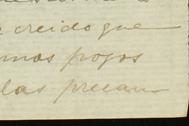 creido que
mos pozos
las precau-